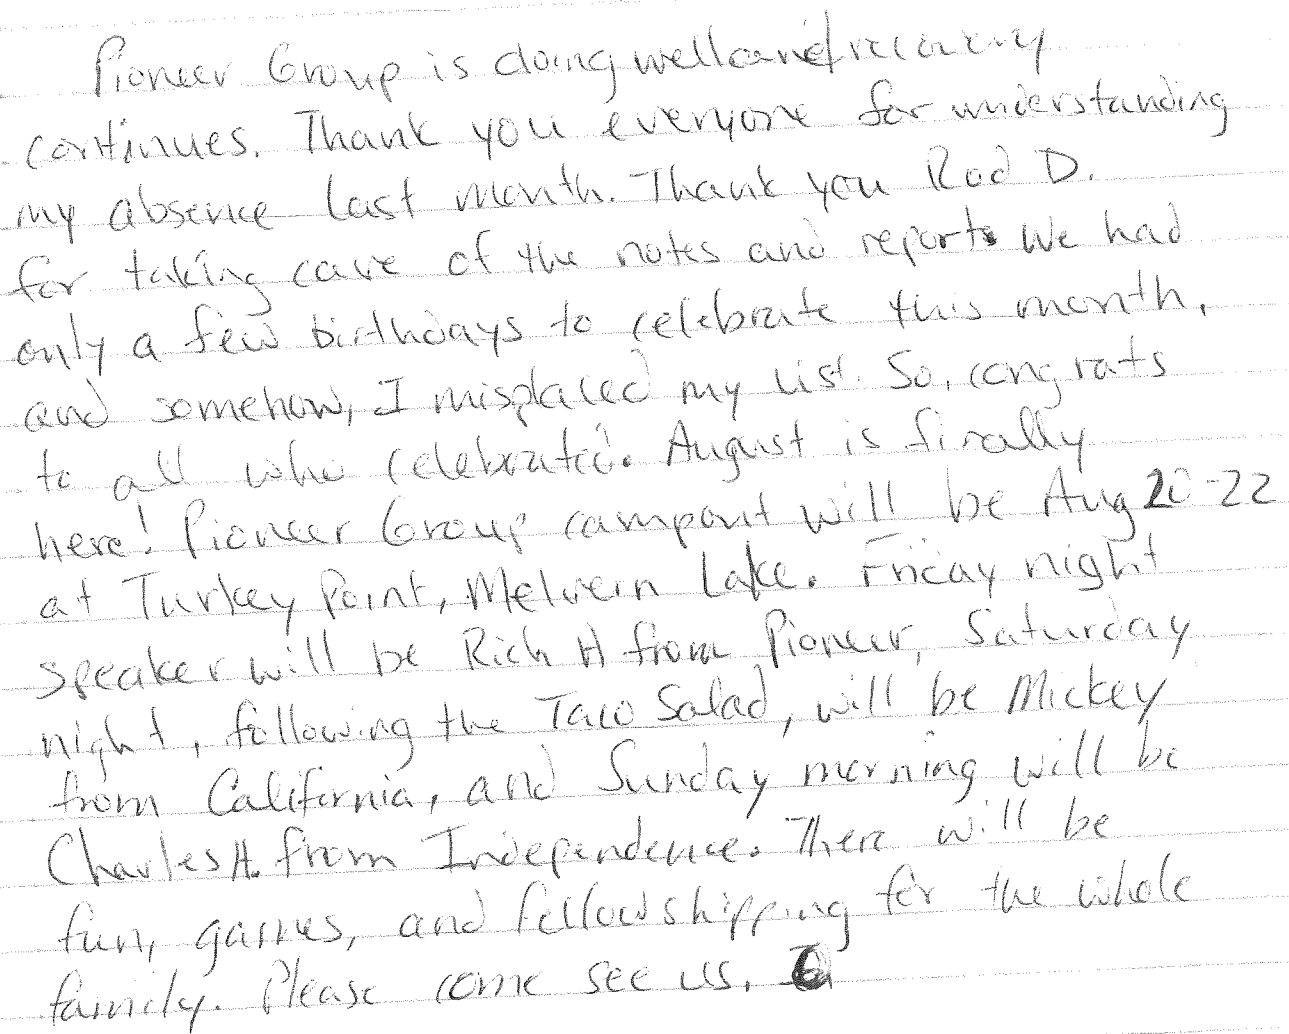 Pioneer Group is doing well and recovery
continues. Thank you everyone for understanding
my absence last month. Thank you Rod D.
for taking care of the notes and report. We had
only a few birthdays to celebrate this month,
and somehow, I misplaced my list. So, congrats
to all who celebrated. August is finally
here! Pioneer Group campout will be Aug 20-22
at Turkey Point, Melvern Lake. Friday night
speaker will be Rich H from Pioneer, Saturday
night, following the Taco Salad, will be Mickey
from California, and Sunday morning will be
Charles H. from Independence. There will be
fun, games, and fellowshipping for the whole
family. Please come see us.